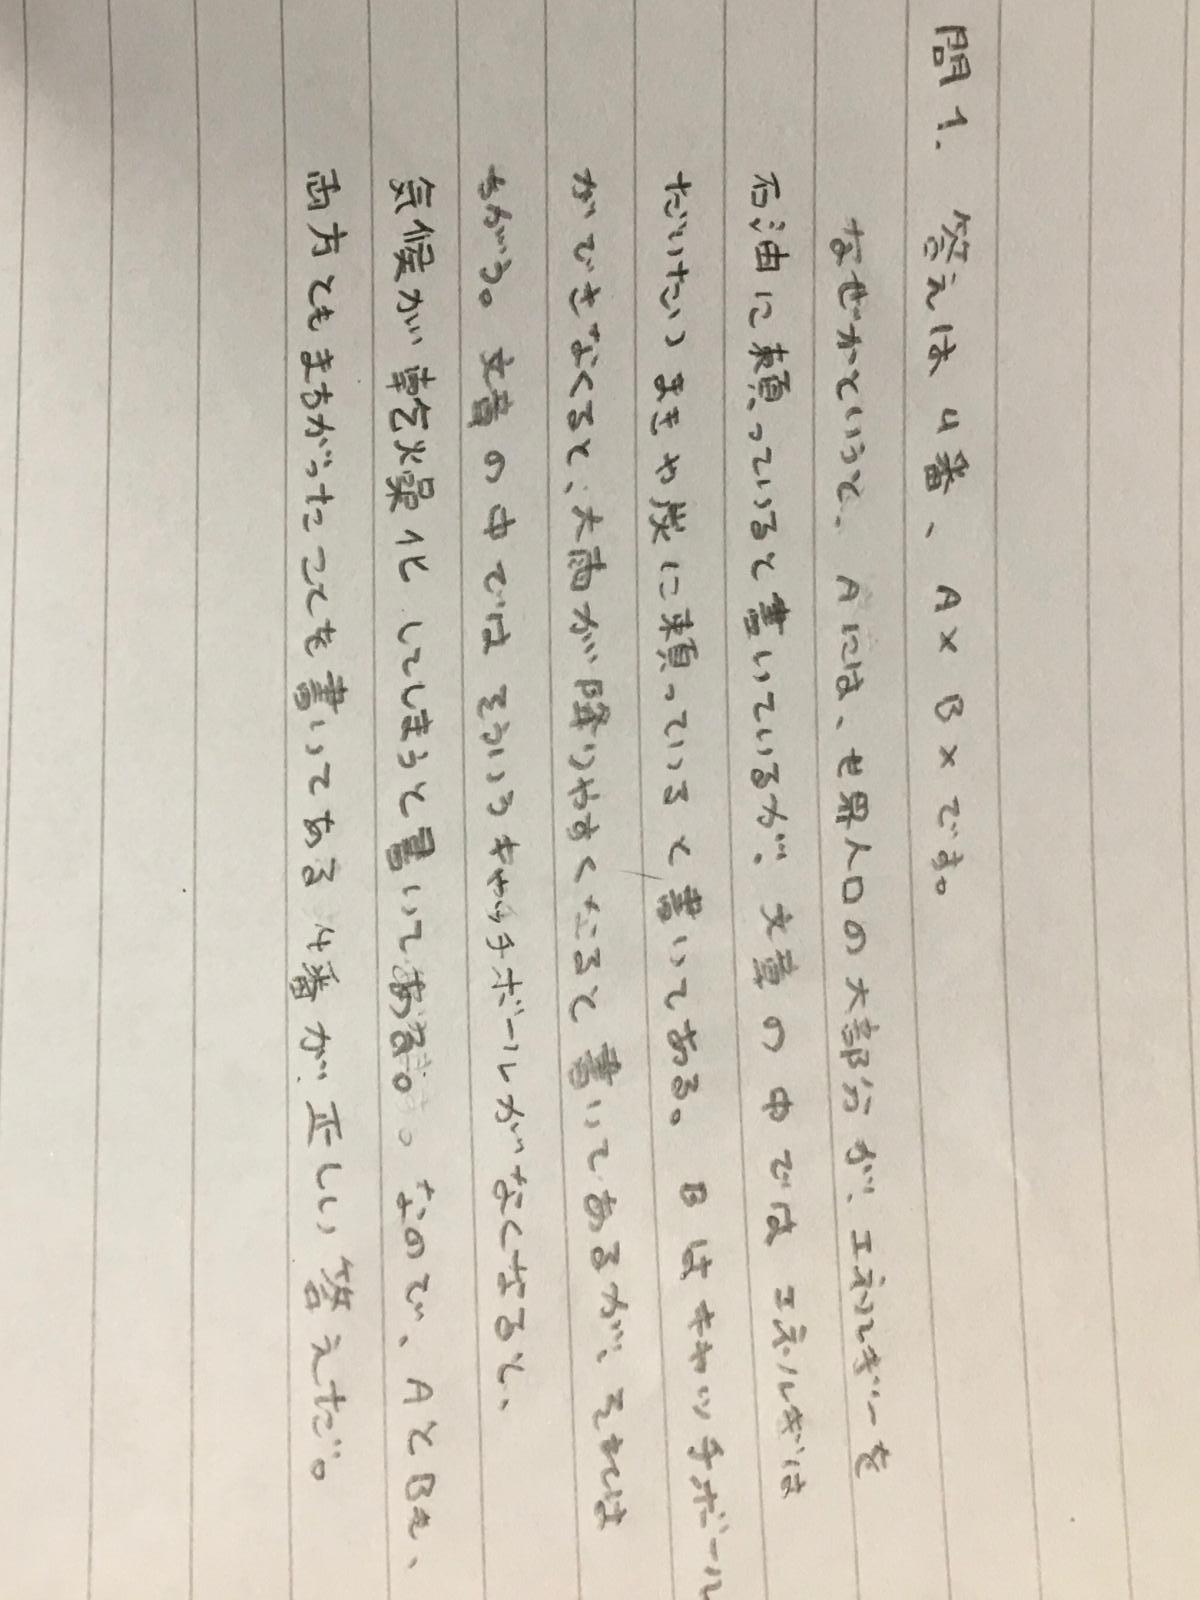 問1. 答えは4番、A× B×です。
なぜかというと、Aには、世界人口の大部分が、エネルギーを
石油に頼っていると書いているが、文章の中ではエネルギは
だいたいまきや炭に頼っていると書いてある。Bはキャッチボール
ができなくると、大雨が降りやすくなると書いてあるが、それは
ちがう。文章の中ではそういうキャッチボールがなくなると、
気候が乾燥化してしまうと書いてある。なので、AとBは、
両方ともまちがったことを書いてある4番が正しい答えだ。